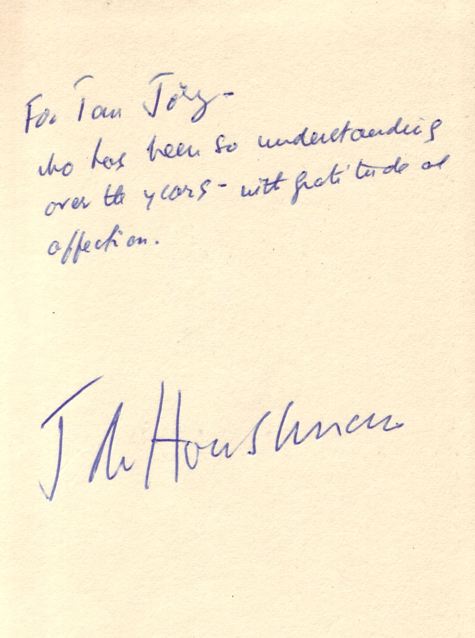 For Tom
who has been so understanding
over the years - with gratitude and
affection.
John Houseman